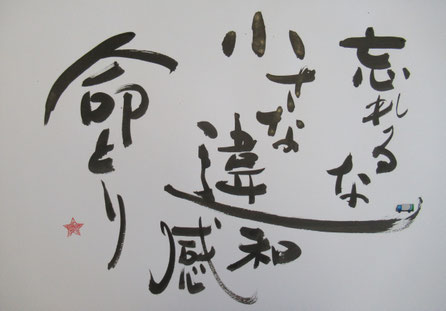 忘れるな
小さな
違和感
命とり